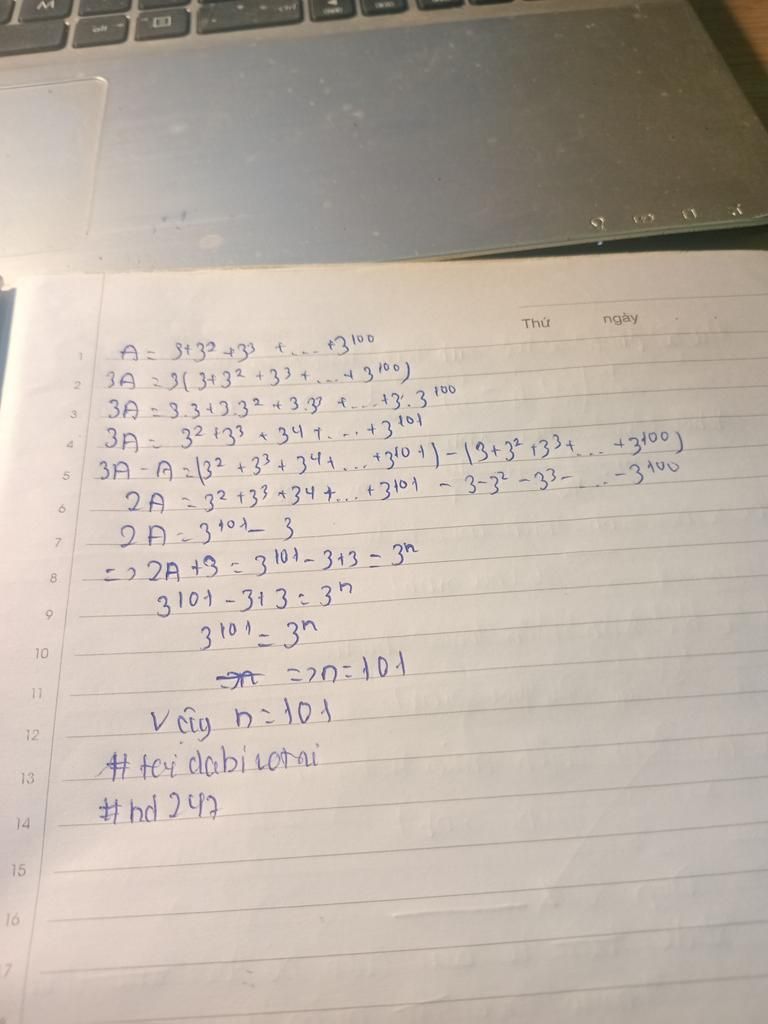 Thứ ngày
1 A = 3+3² +3³ +... +3¹⁰⁰
2 3A = 3(3+3² +3³ +...+ 3¹⁰⁰)
3 3A = 3.3+3.3² +3.3³ +...+3.3¹⁰⁰
4 3A = 3² +3³ + 34 +...+3¹⁰¹
5 3A - A = (3² +3³ + 34 +... +3¹⁰¹) - (3+3² +3³ +... +3¹⁰⁰)
6 2A = 3² +3³ +34 +...+3¹⁰¹ - 3-3² -3³ -... -3¹⁰⁰
7 2A = 3¹⁰¹ - 3
8 => 2A +3 = 3¹⁰¹ - 3+3 = 3ⁿ
9 3¹⁰¹ - 3+3 = 3ⁿ
10 3¹⁰¹ = 3ⁿ
11 => n = 101
12 Vậy n = 101
13
14 #hd247
15
16
17